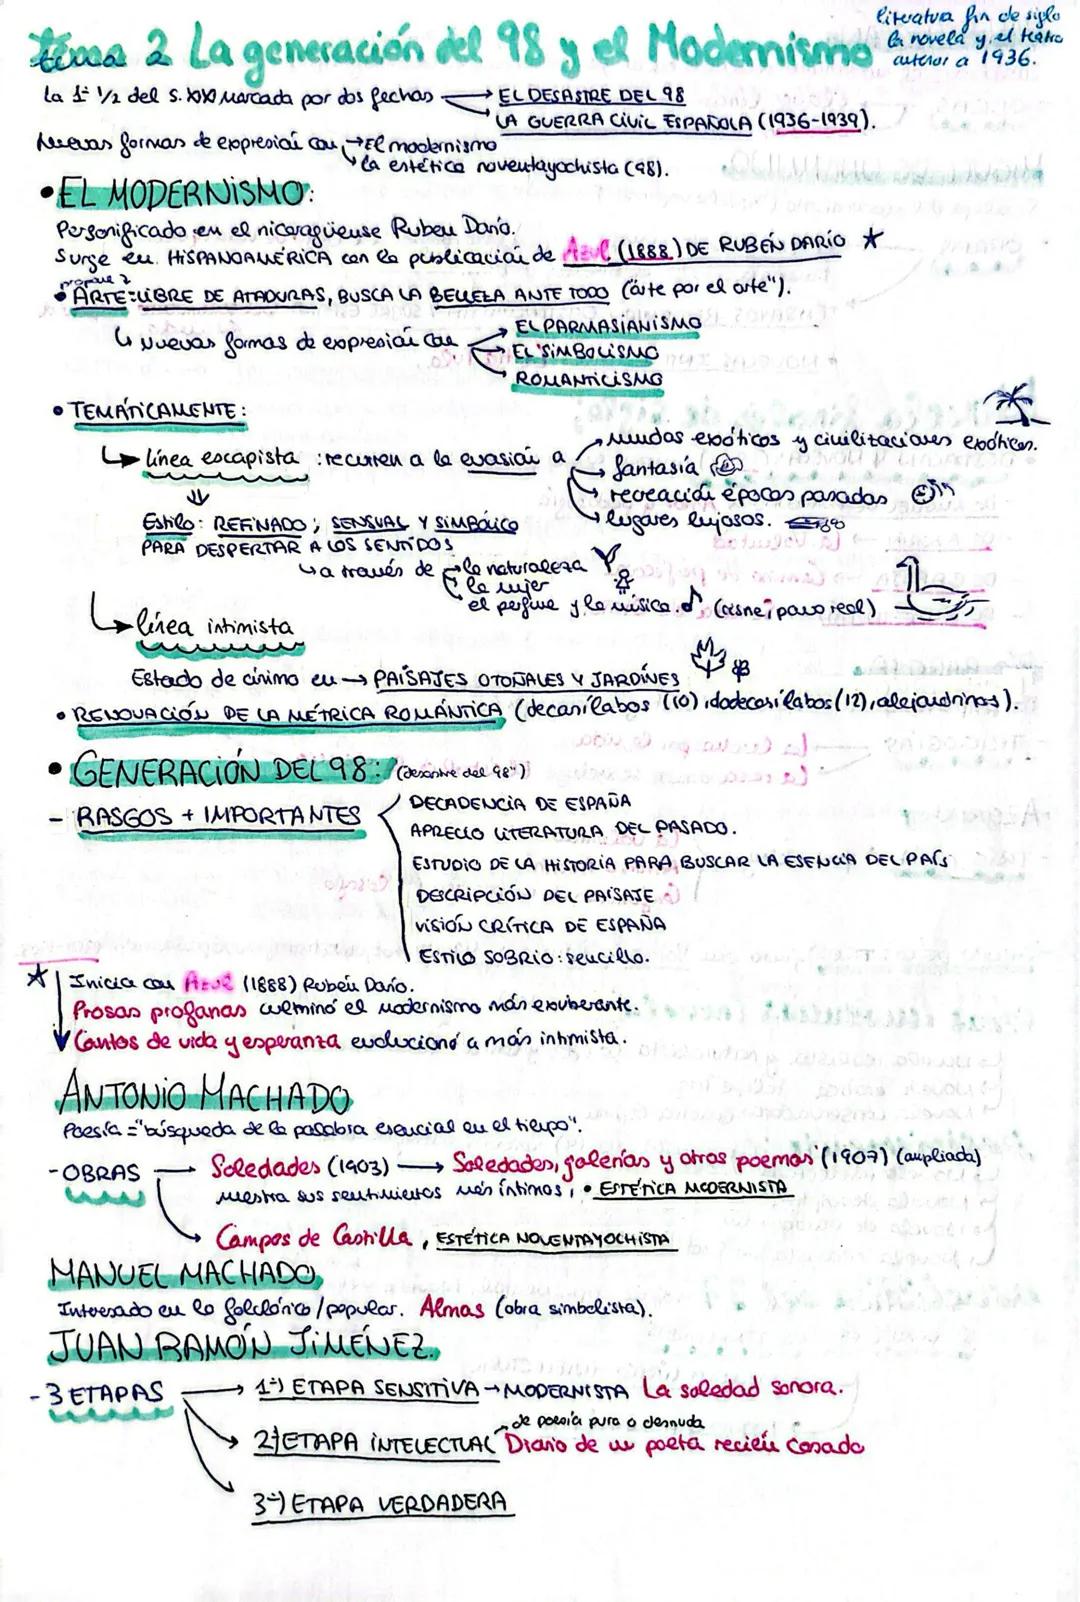 tema 2 La generación del 98 y el Modernismo
literatura fin de siglo
la novela y el teatro
anterior a 1936.
La 1ª 1/2 del s. XX marcada por dos fechas → EL DESASTRE DEL 98
→ LA GUERRA CIVIL ESPAÑOLA (1936-1939).
Nuevas formas de expresión con → El modernismo
→ la estética noventayochista (98).
• EL MODERNISMO:
Personificado en el nicaragüense Ruben Darío.
Surge en HISPANOAMÉRICA con la publicación de Azul (1888) DE RUBÉN DARÍO ★
propone
• ARTE LIBRE DE ATADURAS, BUSCA LA BELLEZA ANTE TODO ("arte por el arte").
↳ Nuevas formas de expresión con → EL PARMASIANISMO
→ EL SIMBOLISMO
→ ROMANTICISMO
• TEMÁTICAMENTE:
↳ línea escapista : recurren a la evasión a → mundos exóticos y civilizaciones exóticas.
→ fantasía
→ recreación épocas pasadas
→ lugares lujosos.
Estilo: REFINADO, SENSUAL Y SIMBÓLICO
PARA DESPERTAR A LOS SENTIDOS
↳ a través de → la naturaleza
→ la mujer
el perfume y la música. (cisne, pavo real)
↳ línea intimista
Estado de ánimo en → PAISAJES OTOÑALES Y JARDINES
• RENOVACIÓN DE LA MÉTRICA ROMÁNTICA (decasílabos (10), dodecasílabos (12), alejandrinos).
• GENERACIÓN DEL 98: (desastre del 98")
- RASGOS + IMPORTANTES
DECADENCIA DE ESPAÑA
APRECIO LITERATURA DEL PASADO.
ESTUDIO DE LA HISTORIA PARA BUSCAR LA ESENCIA DEL PAÍS
DESCRIPCIÓN DEL PAISAJE
VISIÓN CRÍTICA DE ESPAÑA
ESTILO SOBRIO: sencillo.
★ Inicia con Azul (1888) Rubén Darío.
Prosas profanas culminó el modernismo más exuberante.
Cantos de vida y esperanza evolucionó a más intimista.
ANTONIO MACHADO
Poesía = "búsqueda de la palabra esencial en el tiempo".
- OBRAS → Soledades (1903) → Soledades, galerías y otros poemas (1907) (ampliada)
muestra sus sentimientos más íntimos, • ESTÉTICA MODERNISTA
→ Campos de Castilla, ESTÉTICA NOVENTAYOCHISTA
MANUEL MACHADO
Interesado en lo folclórico/popular. Almas (obra simbolista).
JUAN RAMÓN JIMÉNEZ.
- 3 ETAPAS → 1ª) ETAPA SENSITIVA → MODERNISTA La soledad sonora.
de poesía pura o desnuda
→ 2ª) ETAPA INTELECTUAL Diario de un poeta recién casado
→ 3ª) ETAPA VERDADERA